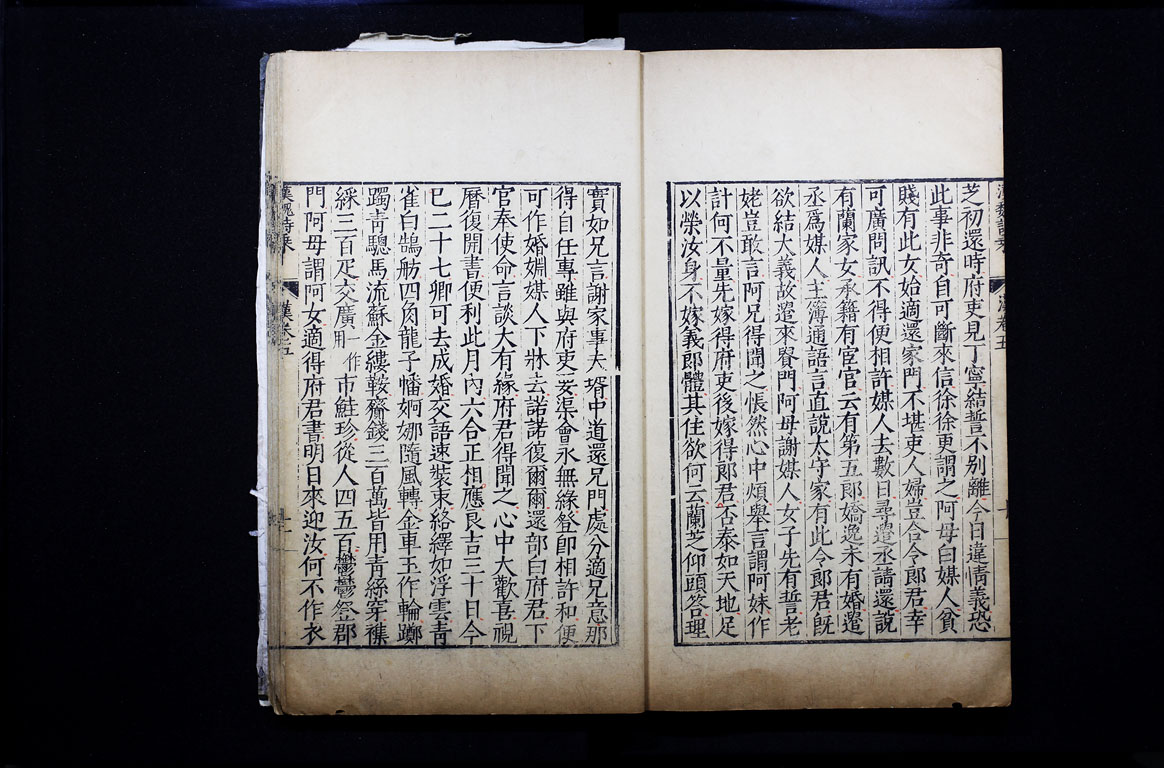 漢魏詩乘 漢卷五
芝初還時府吏見丁寧結誓不别離今日違情義恐
此事非奇自可斷來信徐徐更謂之阿母白媒人貧
賤有此女始適還家門不堪吏人婦豈合令郎君幸
可廣問訊不得便相許媒人去數日尋遣丞請還說
有蘭家女承籍有宦官云有第五郎嬌逸未有婚遣
丞爲媒人主簿通語言直說太守家有此令郎君既
欲結大義故遣來貴門阿母謝媒人女子先有誓老
姥豈敢言阿兄得聞之悵然心中煩舉言謂阿妹作
計何不量先嫁得府吏後嫁得郎君否泰如天地足
以榮汝身不嫁義郎體其住欲何云蘭芝仰頭答理
實如兄言謝家事夫壻中道還兄門處分適兄意那
得自任專雖與府吏要渠會永無緣登即相許和便
可作婚姻媒人下牀去諾諾復爾爾還部白府君下
官奉使命言談大有緣府君得聞之心中大歡喜視
曆復開書便利此月內六合正相應良吉三十日今
已二十七卿可去成婚交語速裝束絡繹如浮雲青
雀白鵠舫四角龍子幡婀娜隨風轉金車玉作輪躑
躅青驄馬流蘇金縷鞍齎錢三百萬皆用青絲穿襍
綵三百疋交廣一作用市鮭珍從人四五百鬱鬱登郡
門阿母謂阿女適得府君書明日來迎汝何不作衣
漢魏詩乘 漢卷五